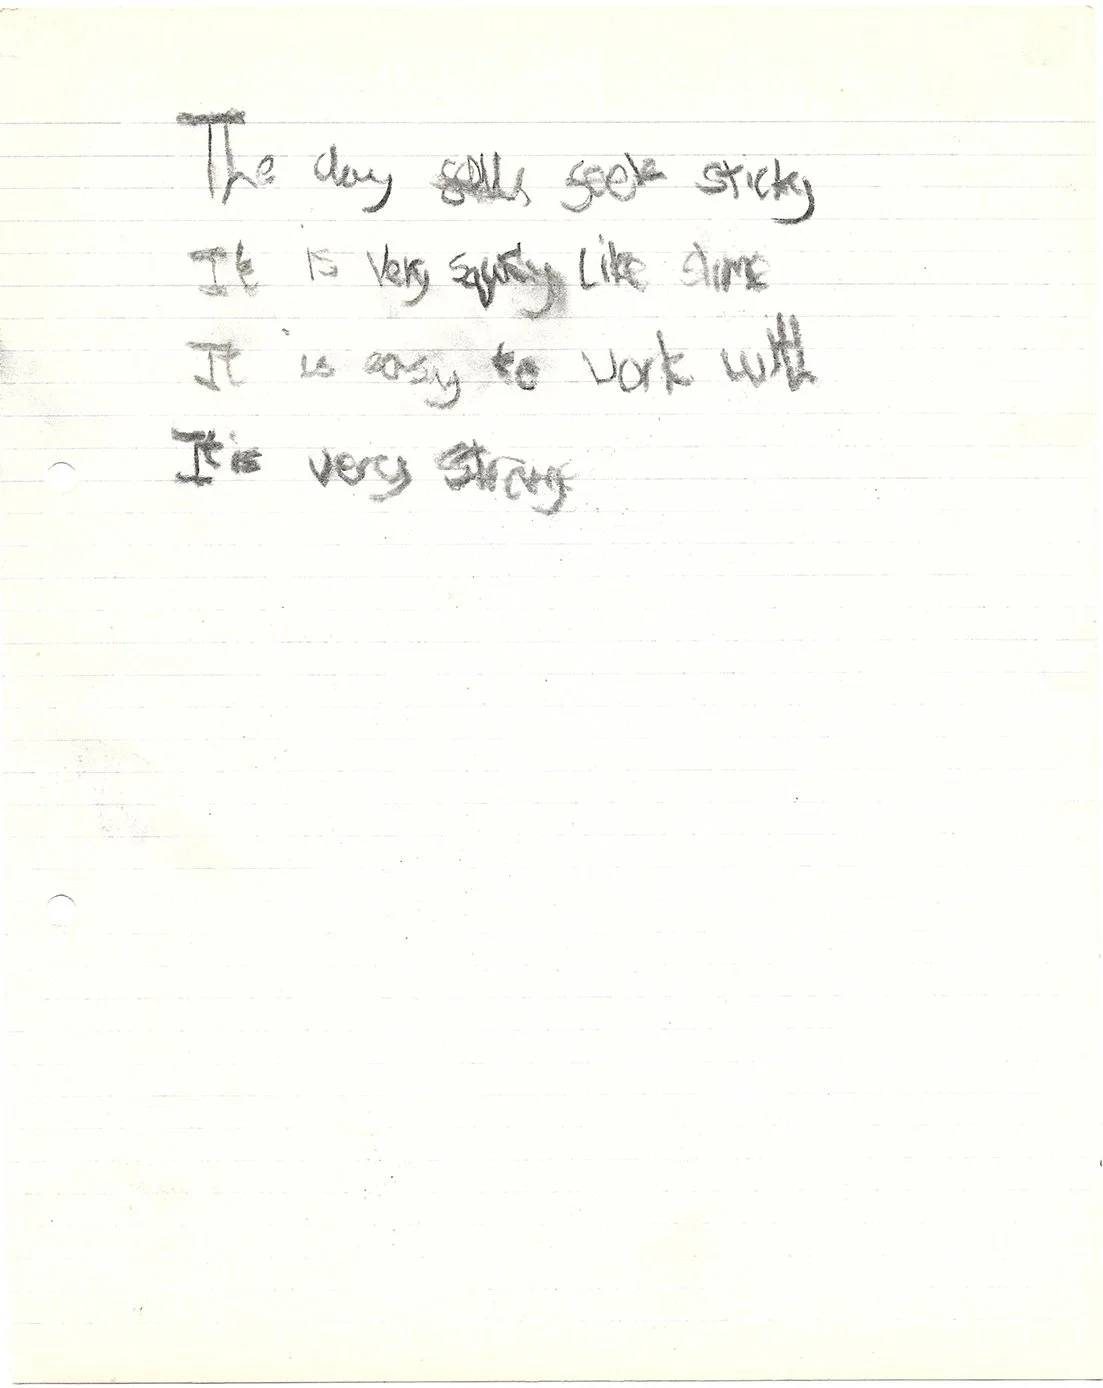 The clay sticky
It is very squishy like slime
It is easy to work with
It is very strong